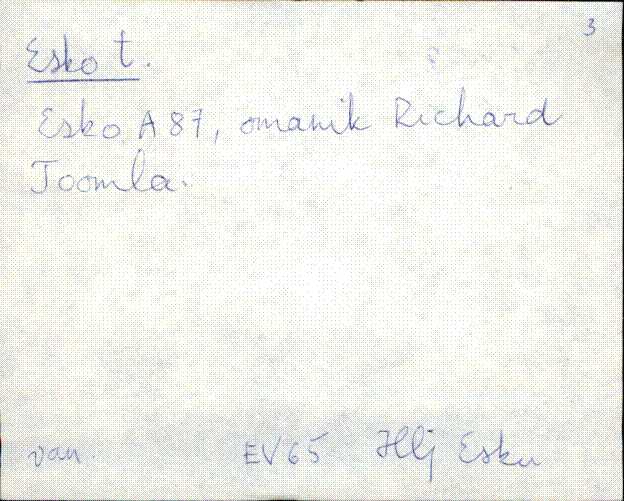 3
Esko t.
Esko A 87, omanik Richard
Joomla.
van. EV65 Hlj Esku